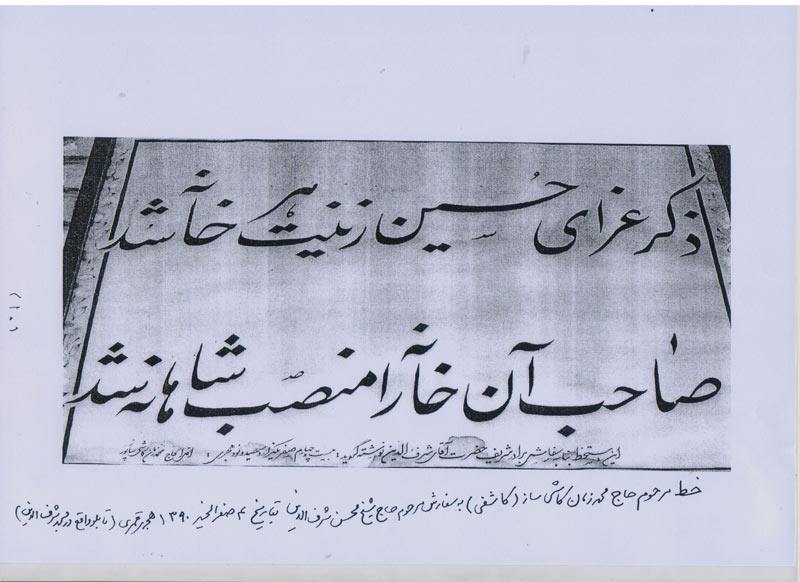 ذکر عزای حسین زینت هر خانه شد
صاحب آن خانه را منصب شاهانه شد
این دستخط بنا بسفارش برادر شریف حضرت آقای شرف الدین نوشته گردید
خط مرحوم حاج محمد زمان کاشی ساز (کاشفی) به سفارش مرحوم حاج شیخ محسن شرف الدین بتاریخ ۴ صفر الخیر ۱۳۹۰ هجری قمری (تابلو واقع در مسجد شرف الدین)